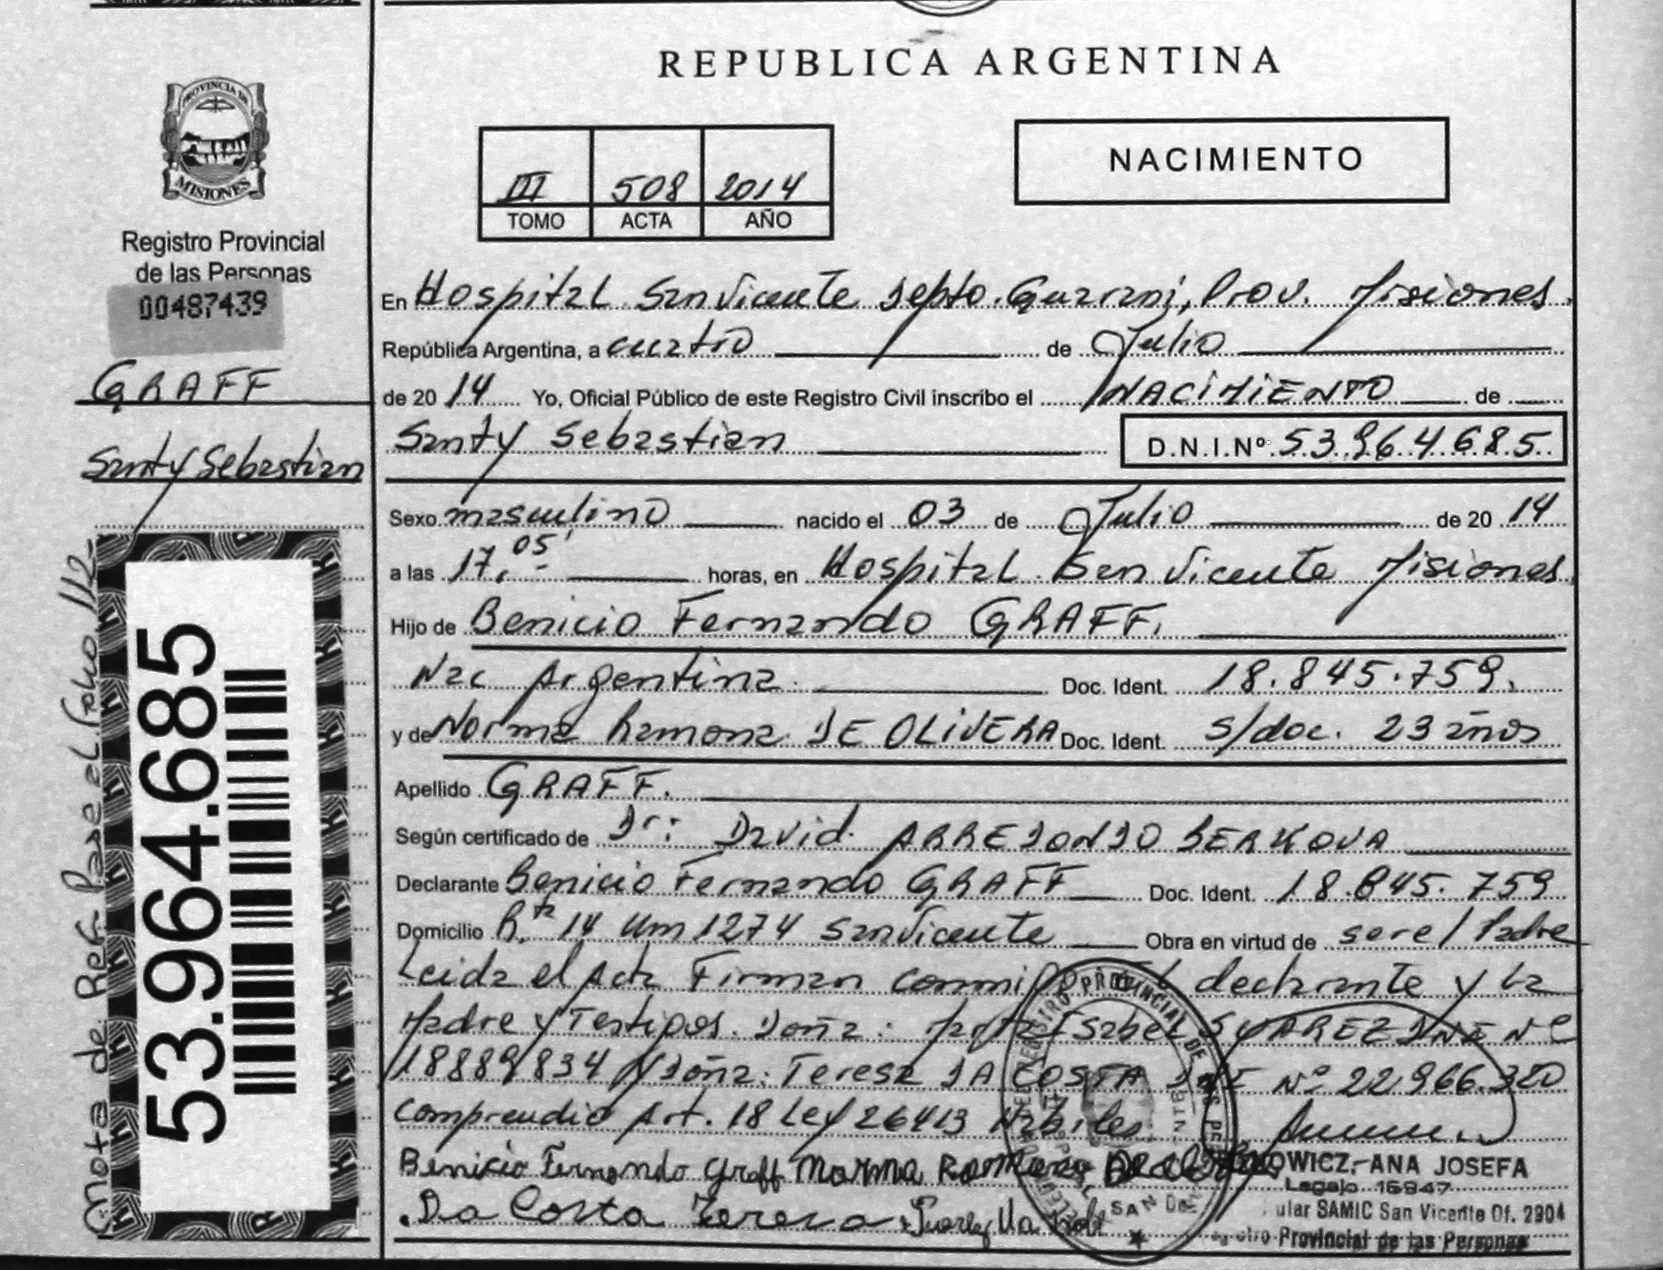 REPUBLICA ARGENTINA
PROVINCIA DE
MISIONES
Registro Provincial
de las Personas
00487439
GRAFF
Santy Sebastian
Nota de Ref. Pase al Folio 112-
53.964.685
III 508 2014
TOMO ACTA AÑO
NACIMIENTO
En Hospital San Vicente Depto. Guarani, Prov. Misiones.
República Argentina, a cuatro de Julio
de 20 14 Yo, Oficial Público de este Registro Civil inscribo el NACIMIENTO de
Santy Sebastian D.N.I.Nº 53.964.685.
Sexo masculino nacido el 03 de Julio de 20 14
a las 17,05'- horas, en Hospital San Vicente Misiones
Hijo de Benicio Fernando GRAFF.
Nac Argentina. Doc. Ident. 18.845.759.
y de Norma Ramona DE OLIVERA Doc. Ident. s/doc. 23 años
Apellido GRAFF.
Según certificado de Dr: David ARREDONDO BERKOVA
Declarante Benicio Fernando GRAFF Doc. Ident. 18.845.759
Domicilio Rta 14 Km 1274 San Vicente Obra en virtud de ser el Padre
Leida el Acta Firman conmigo El declarante y la
Madre y Testigos. Doña: Isabel SUAREZ DNI Nº
18889834 y Doña: Teresa DA COSTA DNI Nº 22.966.320
Comprendio Art. 18 Ley 26413 Habiles
Benicio Fernando Graff Norma Ramona De
Da Costa Teresa
REGISTRO PROVINCIAL DE LAS PERSONAS
OWICZ, ANA JOSEFA
Legajo 16947
ular SAMIC San Vicente Of. 2904
Provincial de las Personas